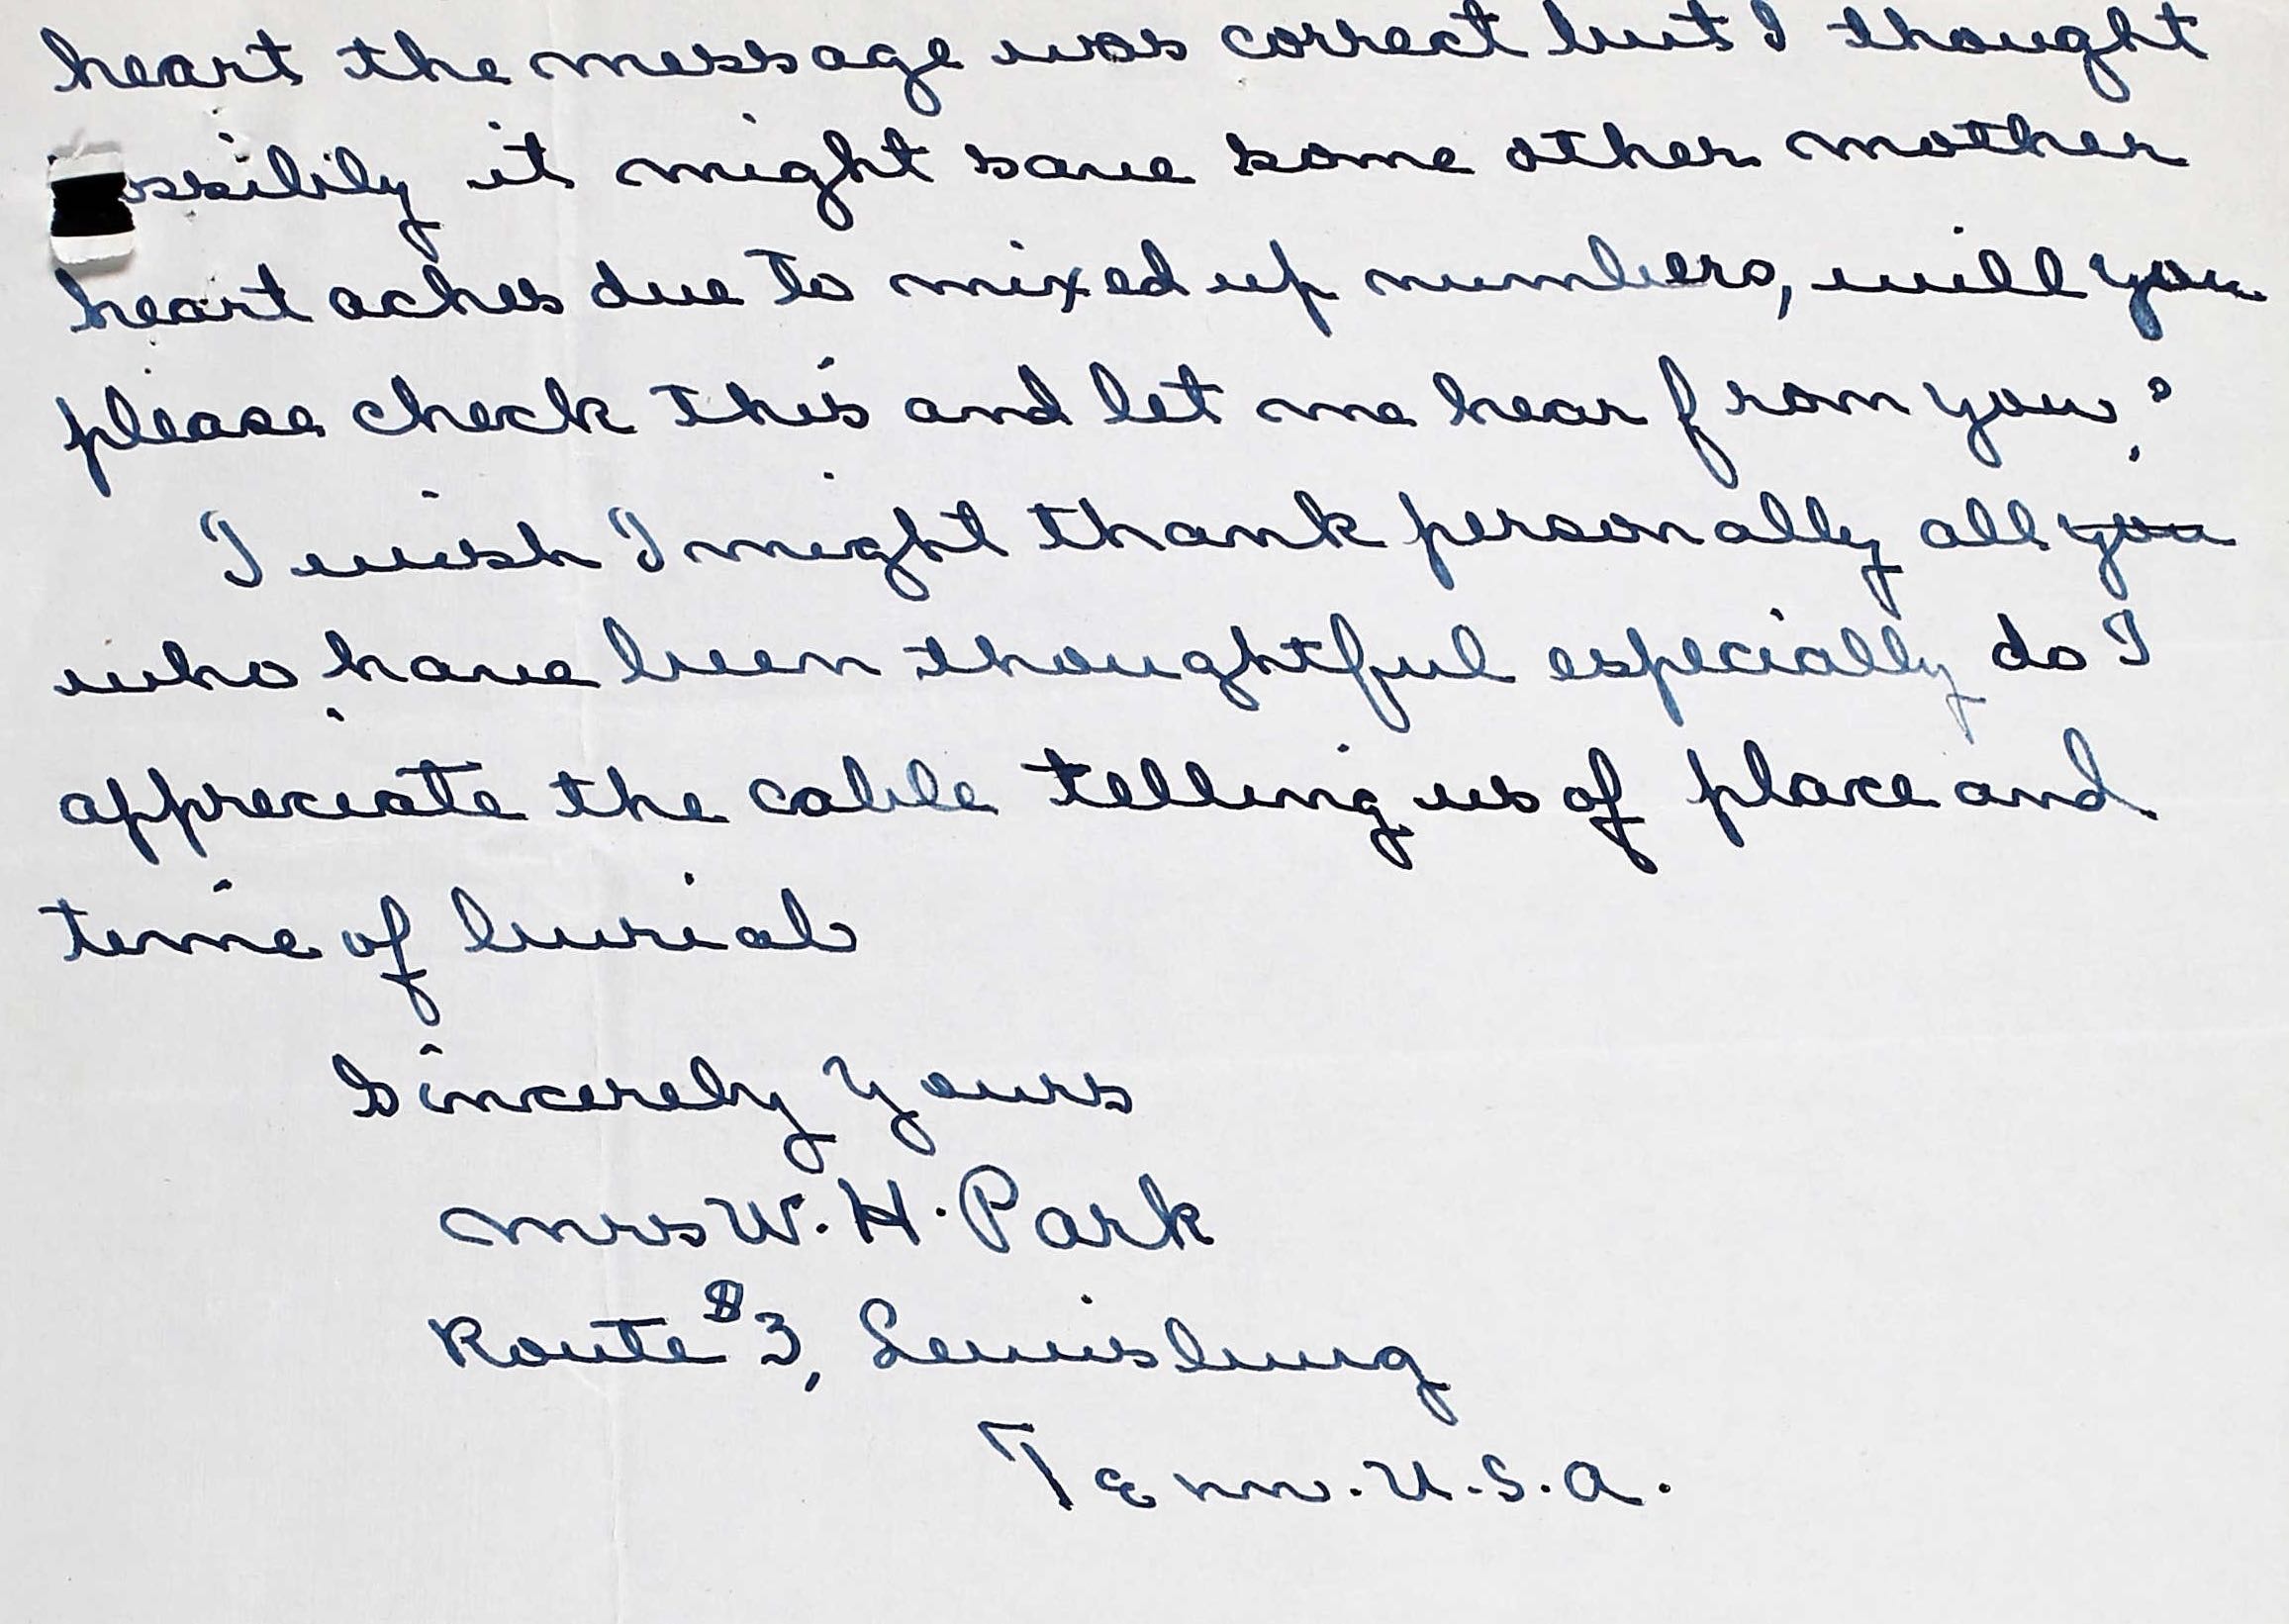 heart the message was correct but I thought
ossibily it might save some other mother
heart aches due to mixed up numbers, will you
please check this and let me hear from you?
I wish I might thank personally all you
who have been thoughtful especially do I
appreciate the cable telling us of place and
time of burial
Sincerely Yours
Mrs W. H. Park
Route #3, Lewisburg
Tenn. U.S.A.